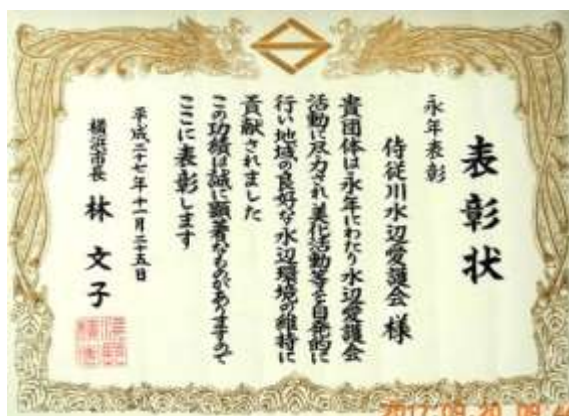 表彰状
永年表彰
侍従川水辺愛護会 様
貴団体は永年にわたり水辺愛護会
活動に尽力され美化活動等を自発的に
行い地域の良好な水辺環境の維持に
貢献されました
この功績は誠に顕著なものがありますので
ここに表彰します
平成二十七年十一月二十五日
横浜市長 林 文子